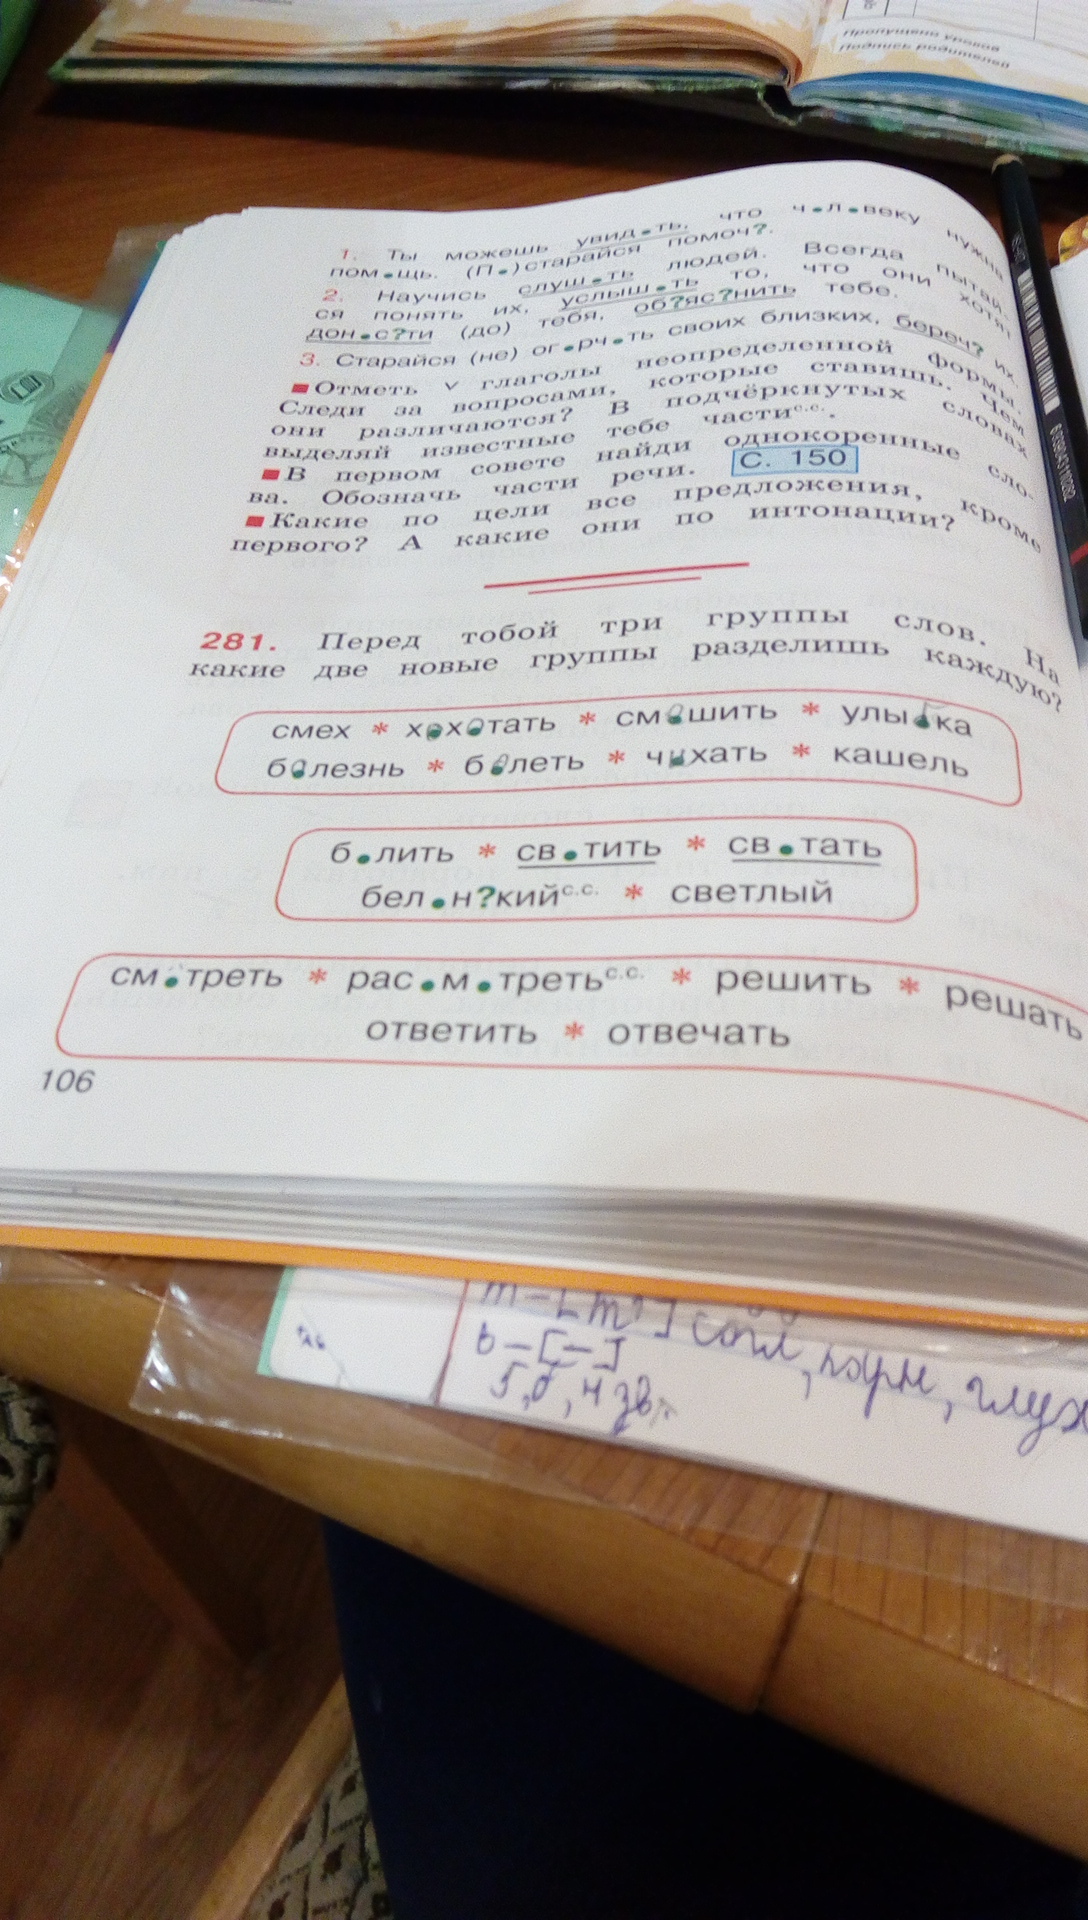 Пропущено уроков
Подпись родителей
1. Ты можешь увид•ть, что ч•л•веку нужна
пом•щь. (П•)старайся помоч?.
2. Научись слуш•ть людей. Всегда пытай-
ся понять их, услыш•ть то, что они хотят
дон•с?ти (до) тебя, об?яс?нить тебе.
3. Старайся (не) ог•рч•ть своих близких, береч? их.
Отметь v глаголы неопределенной формы.
Следи за вопросами, которые ставишь. Чем
они различаются? В подчёркнутых словах
выделяй известные тебе части с.с..
В первом совете найди однокоренные сло-
ва. Обозначь части речи. С. 150
Какие по цели все предложения, кроме
первого? А какие они по интонации?
281. Перед тобой три группы слов. На
какие две новые группы разделишь каждую?
смех * хохотать * смешить * улы•ка
болезнь * болеть * чихать * кашель
б•лить * св•тить * св•тать
бел•н?кий с.с. * светлый
см•треть * рас•м•треть с.с. * решить * решать
ответить * отвечать
106
т – [т'] согл, парн, глух
ь – [–]
5 б, 4 зв